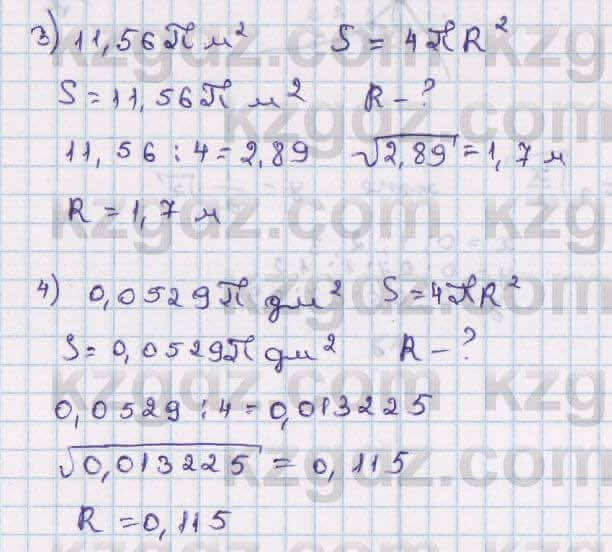 3) 11,56П м² S = 4ПR²
S = 11,56П м² R – ?
11,56 : 4 = 2,89 √2,89 = 1,7 м
R = 1,7 м
4) 0,0529П дм² S = 4ПR²
S = 0,0529П дм² R – ?
0,0529 : 4 = 0,013225
√0,013225 = 0,115
R = 0,115